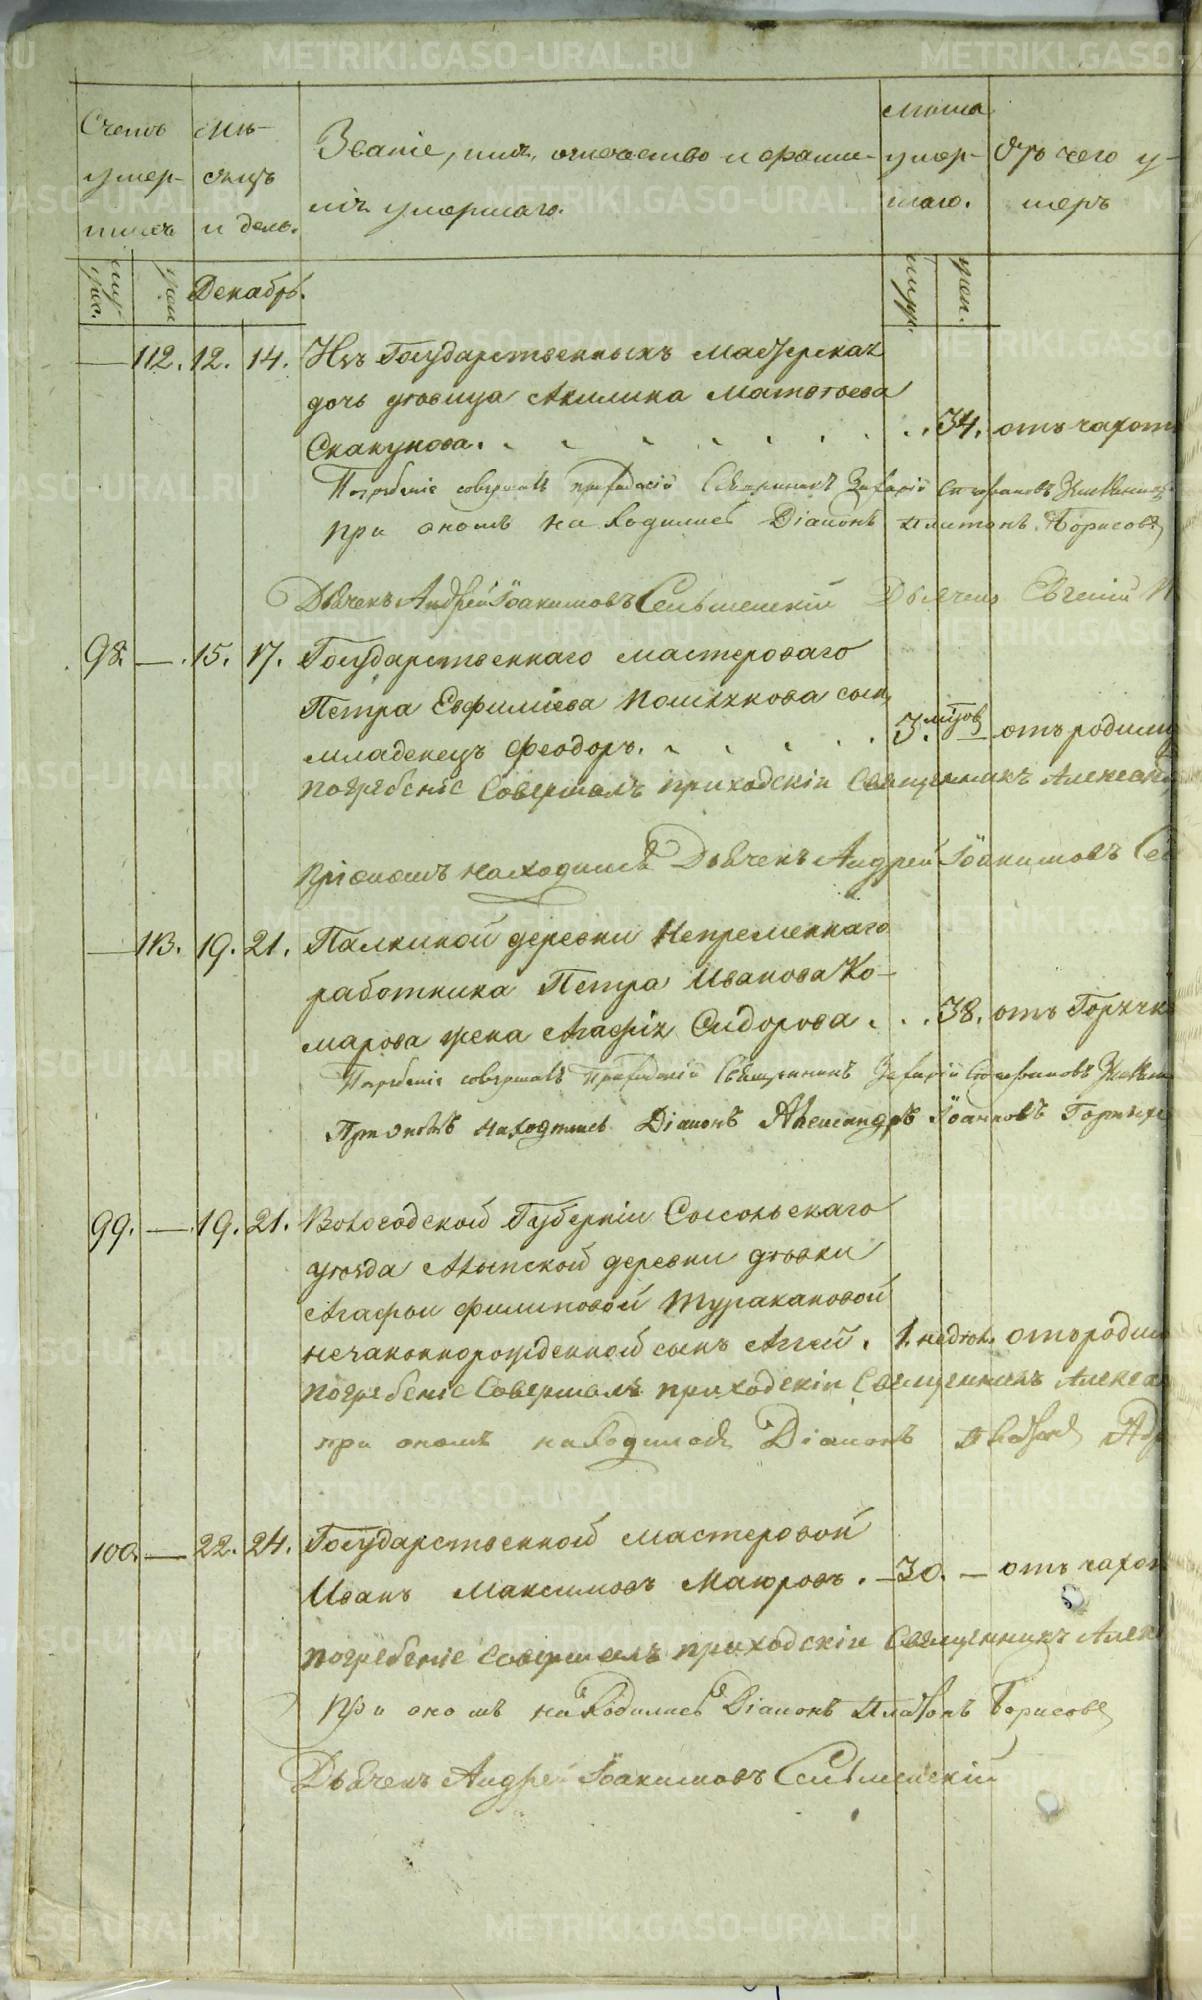 METRIKI.GASO-URAL.RU
Счетъ умер- шихъ
мѣ- сяцъ и день.
Званіе, имя, отчество и фами-
лія умершаго.
лѣта умер- шаго.
Отъ чего у- меръ
муж. жен. Декабрь. муж. жен.
— 112. 12. 14. Изъ Государственныхъ мастерская
дочь дѣвица Акилина Матвѣева
Скакунова. 34. отъ чахот
Погребеніе совершалъ приходскій Священникъ Захарій Стефановъ
при ономъ находились Діаконъ Платонъ Борисовъ
Дьячекъ Андрей Іоакимовъ Сельменскій Дьячекъ Евгеній
98. — 15. 17. Государственнаго мастероваго
Петра Евфиміева сынъ
младенецъ Феодоръ. 3. мцов — отъ родим
погребеніе Совершалъ приходскіи Священникъ Александ
при ономъ находился Дьячекъ Андрей Іоакимовъ Се
— 113. 19. 21. Палкиной деревни Непременнаго
работника Петра Иванова Ко-
марова жена Агафія Сидорова. 38. отъ Горячк
Погребеніе совершалъ приходскій Священникъ Захарій Стефановъ
При ономъ находились Діаконъ Александръ Іоанновъ
99. — 19. 21. Вологодской Губерніи Сольскаго
уѣзда деревни дѣвки
Агафьи Филиповой Туракановой
незаконнорожденной сынъ 1. недѣл. отъ родим
погребеніе Совершалъ приходскіи Священникъ Алекса
при ономъ находился Діаконъ
100. — 22. 24. Государственной мастеровой
Иванъ Максимовъ Маюровъ. — 30. — отъ чахот
погребеніе Совершалъ приходскіи Священникъ Алек
При ономъ находились Діаконъ Платонъ Борисовъ
Дьячекъ Андрей Іоакимовъ Сельменскій